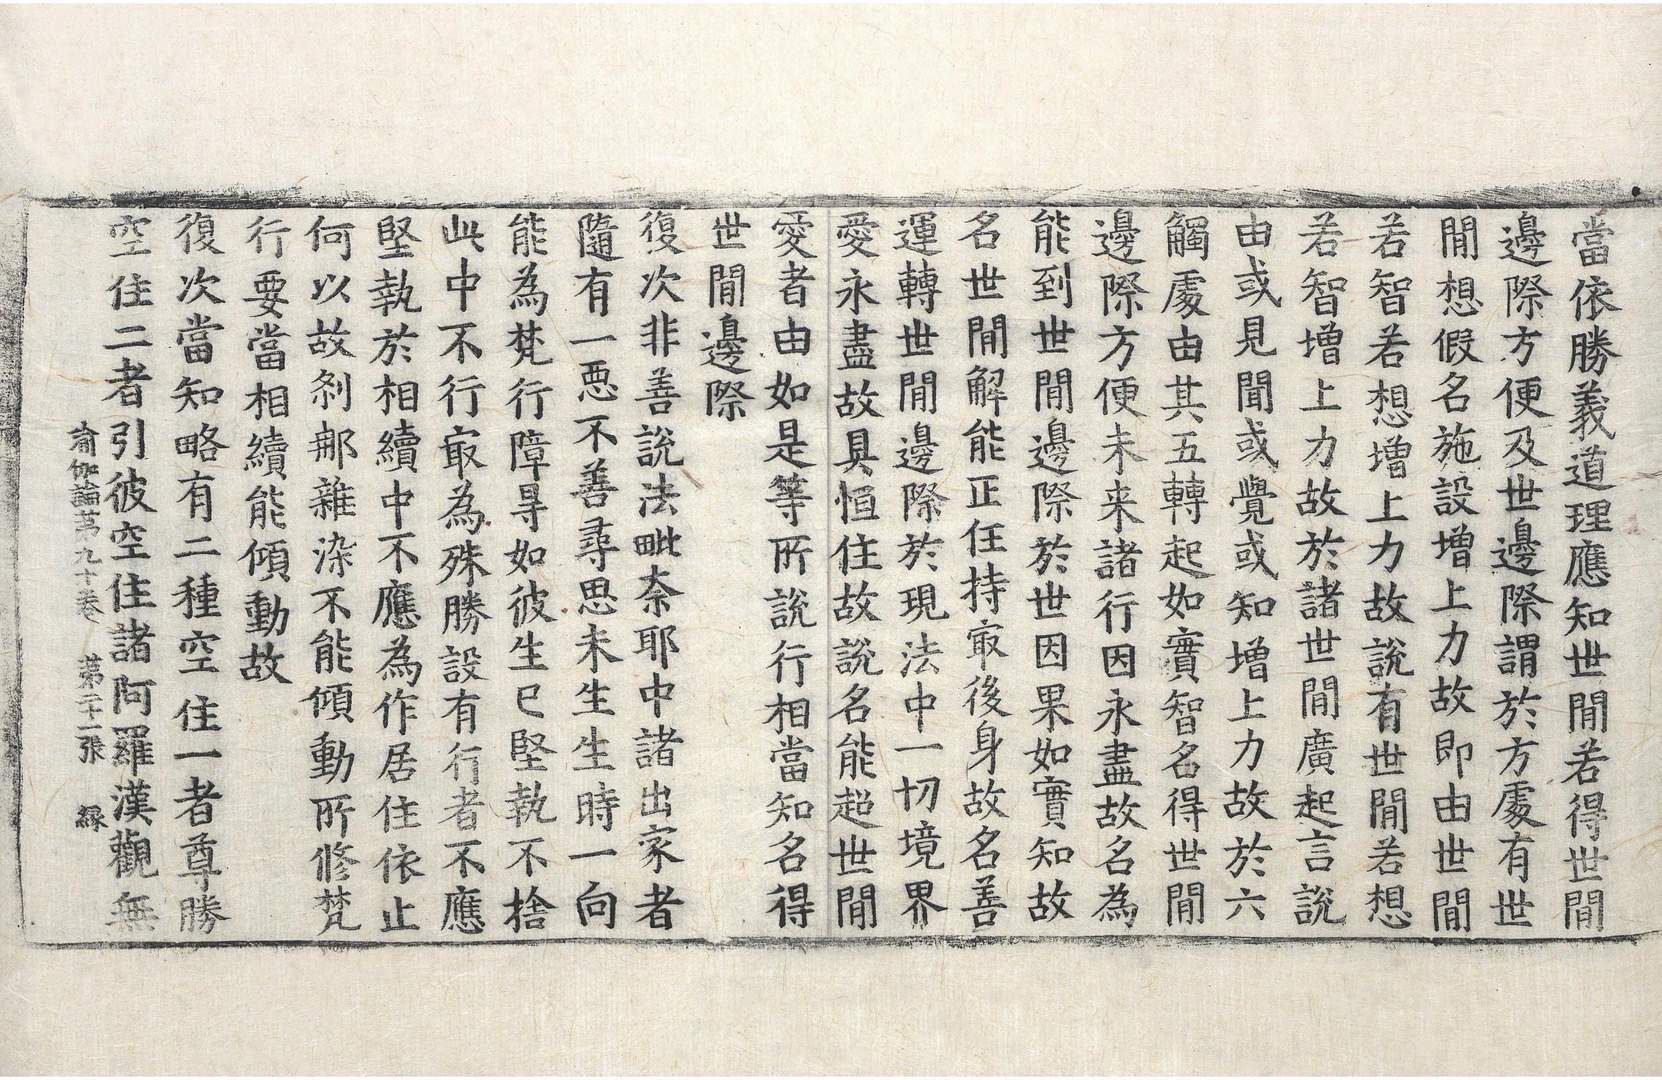 當依勝義道理應知世間若得世間
邊際方便及世邊際謂於方處有世
間想假名施設增上力故即由世間
若智若想增上力故說有世間若想
若智增上力故於諸世間廣起言說
由或見聞或覺或知增上力故於六
觸處由其五轉起如實智名得世間
邊際方便未来諸行因永盡故名為
能到世間邊際於世因果如實知故
名世間解能正任持㝡後身故名善
運轉世間邊際於現法中一切境界
愛永盡故具恒住故說名能超世間
愛者由如是等所說行相當知名得
世間邊際
復次非善說法毗奈耶中諸出家者
隨有一惡不善尋思未生生時一向
能為梵行障㝵如彼生已堅執不捨
此中不行㝡為殊勝設有行者不應
堅執於相續中不應為作居住依止
何以故剎那雜染不能傾動所修梵
行要當相續能傾動故
復次當知略有二種空住一者尊勝
空住二者引彼空住諸阿羅漢觀無
瑜伽論第九十卷 第二十二張